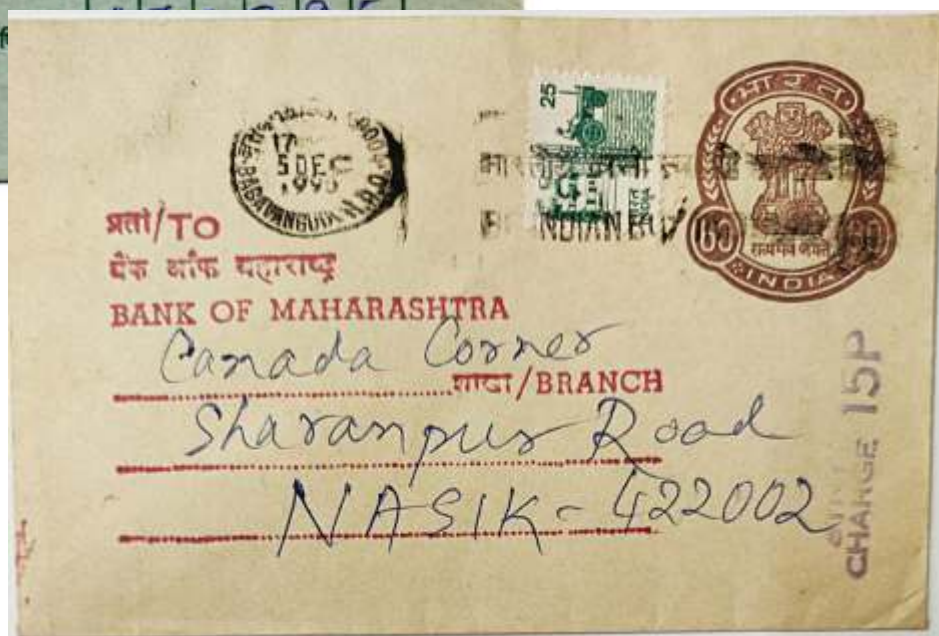 17
5 DEC
BASAVANGUDI H.R.O.
25
भारत
60
सत्यमेव जयते
INDIA
INDIAN
प्रती/TO
बैंक ऑफ महाराष्ट्र
BANK OF MAHARASHTRA
Canada Corner
शाखा/BRANCH
Sharanpur Road
NASIK - 422002
CHANGE 15P